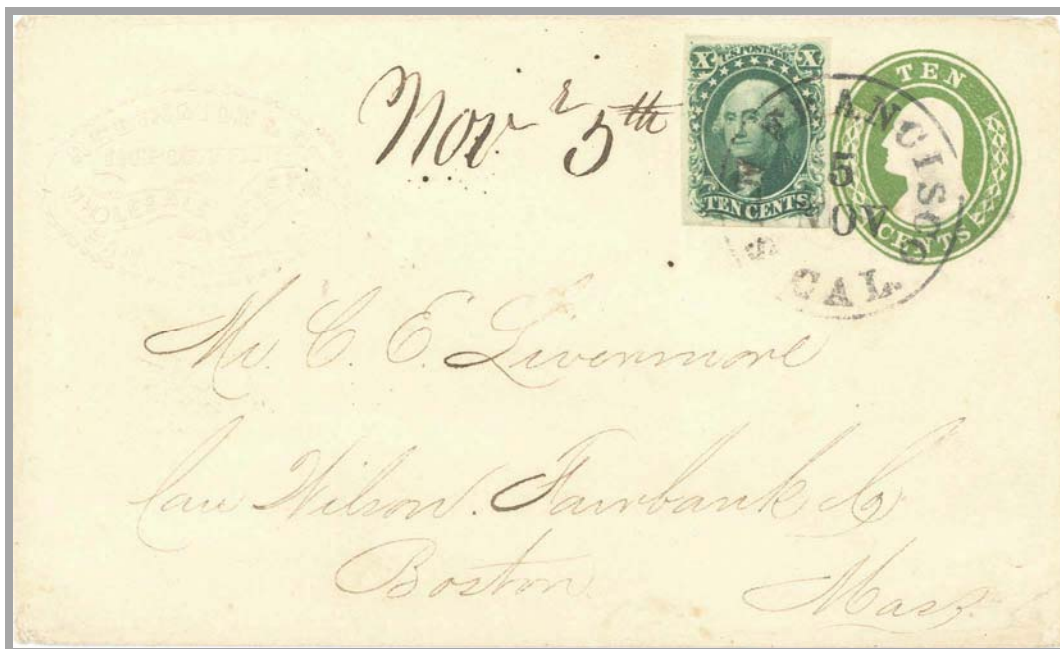 Nov. 5th
X U.S. POSTAGE X
TEN CENTS
TEN
CENTS
SAN FRANCISCO
5
NOV
CAL.
WHOLESALE
Mr. C. E. Livermore
Care Wilson. Fairbank & Co
Boston
Mass.